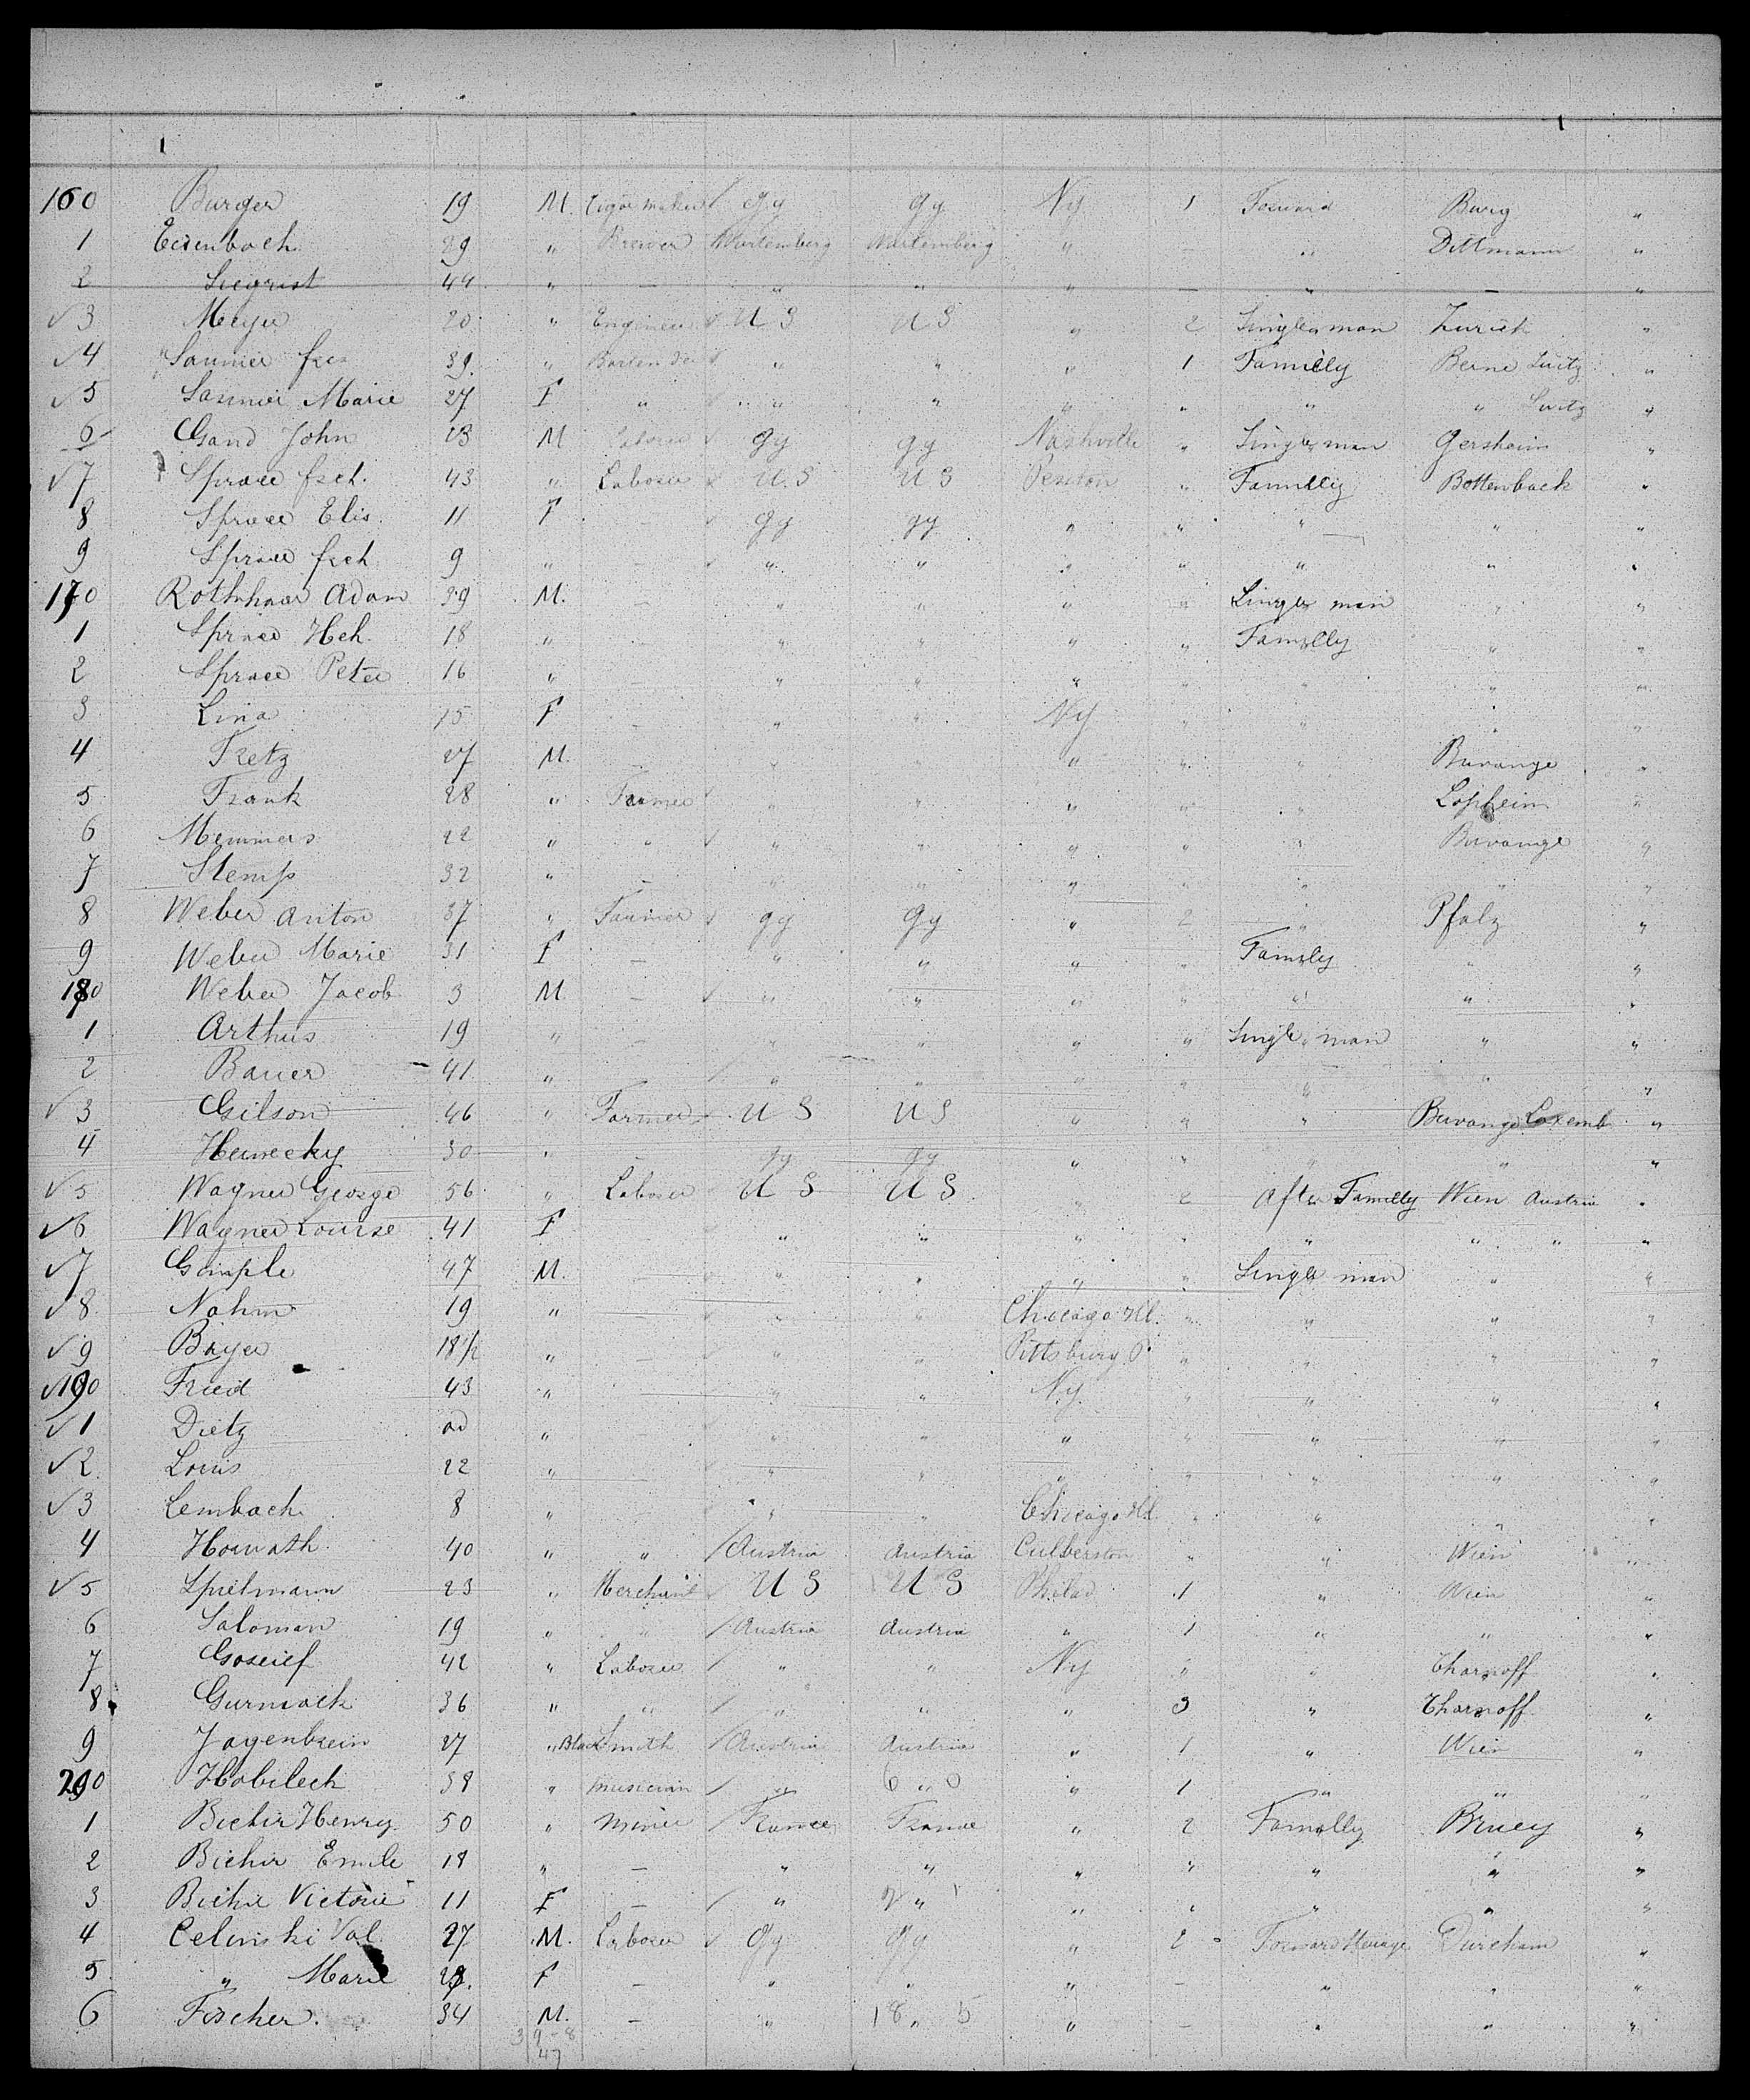 160 Burger 19 M. Cigar maker / Gy Gy Ny 1 Forward Burg "
1 Eisenbach 29 " Brewer Wurtemberg Wurtemberg " " Dittmann "
2 Siegrist 44 " — " " " — " — "
√ 3 Meyer 20 " Engineer √ U S U S " 2 Single man Zurich "
√ 4 Saunier fres 39 " √ " " " 1 Familly Berne Suitz "
√ 5 Saunier Marie 27 F " √ " " " " " " Suitz "
6 Gand John 23 M Laborer √ Gy Gy Nashville " Single man Gersheim "
√ 7 Spraee fsch. 43 " Laborer √ U.S U S " Familly Bottenback "
8 Spraee Elis 11 F — √ Gy Gy " " " " "
9 Spraee fsch 9 " — √ " " " " " " "
170 Rothhaar Adam 39 M. — " " " " Single man " "
1 Spraee Hch. 18 " — " " " " Familly " "
2 Spraee Peter 16 " — " " " " " " "
3 Lina 15 F — " " Ny " " " "
4 Fretz 27 M. — " " " " " Buvange "
5 Frank 28 " Farmer √ " " " " " "
6 Memmers 22 " " √ " " " " " Buvange "
7 Stemp 32 " — " " " " " " "
8 Weber Anton 37 " Farmer √ Gy Gy " 2 " Pfalz "
9 Weber Marie 31 F — " " " " Family " "
180 Weber Jacob 3 M — √ " " " " " " "
1 Arthus 19 " — " " " " Single man " "
2 Bauer 41 " — / " " " " " " "
√ 3 Gilson 46 " Farmer √ U S U S " " " Buvange Luxemb "
4 30 " — Gy Gy " " " " "
√ 5 Wagner George 56 " Laborer √ U S U S " 2 After Familly Wien Austria "
√ 6 Wagner Lourse 41 F " " " " " " " "
√ 7 Gimple 47 M. — " " " " Single man " "
√ 8 Nahm 19 " — √ " " Chicago Ill. " " " "
√ 9 Bayer 18 1/2 " — √ " " Pittsburg P " " " "
√ 190 Fried 43 " " " Ny. " " " "
√ 1 Dietz ad " √ " " " " " " "
√ 2 Louis 22 " √ " " " " " " "
√ 3 Lembach 8 " √ " " Chicago Ill " " " "
4 Horvath 40 " " / Austria Austria Culberston " " Wien "
√ 5 Spielmann 23 " Merchant √ U S U S Philad 1 " Wien "
6 Saloman 19 " " / Austria Austria " 1 " " "
7 42 " Laborer / " " Ny " " Tharnoff "
8 Gurmack 36 " " / " " " 3 " Tharnoff "
9 Jagenbrein 27 " Blacksmith / Austria Austria " 1 " Wien "
200 Habilech 38 " musician / " 6 " 0 " 1 " " "
1 Bichir Henry 50 " Miner / France France " 2 Familly Bruey "
2 Bichir Emile 18 " — " " " " " " "
3 Bichir Victorie 11 F — / " " " " " " "
4 Celinski Val. 27 M. Laborer √ Gy Gy " 2 Forward "
5 " Marie F — " " " — " " "
6 Fischer. 34 M. — " 18 " 5 " — " " "
3 9-8
47